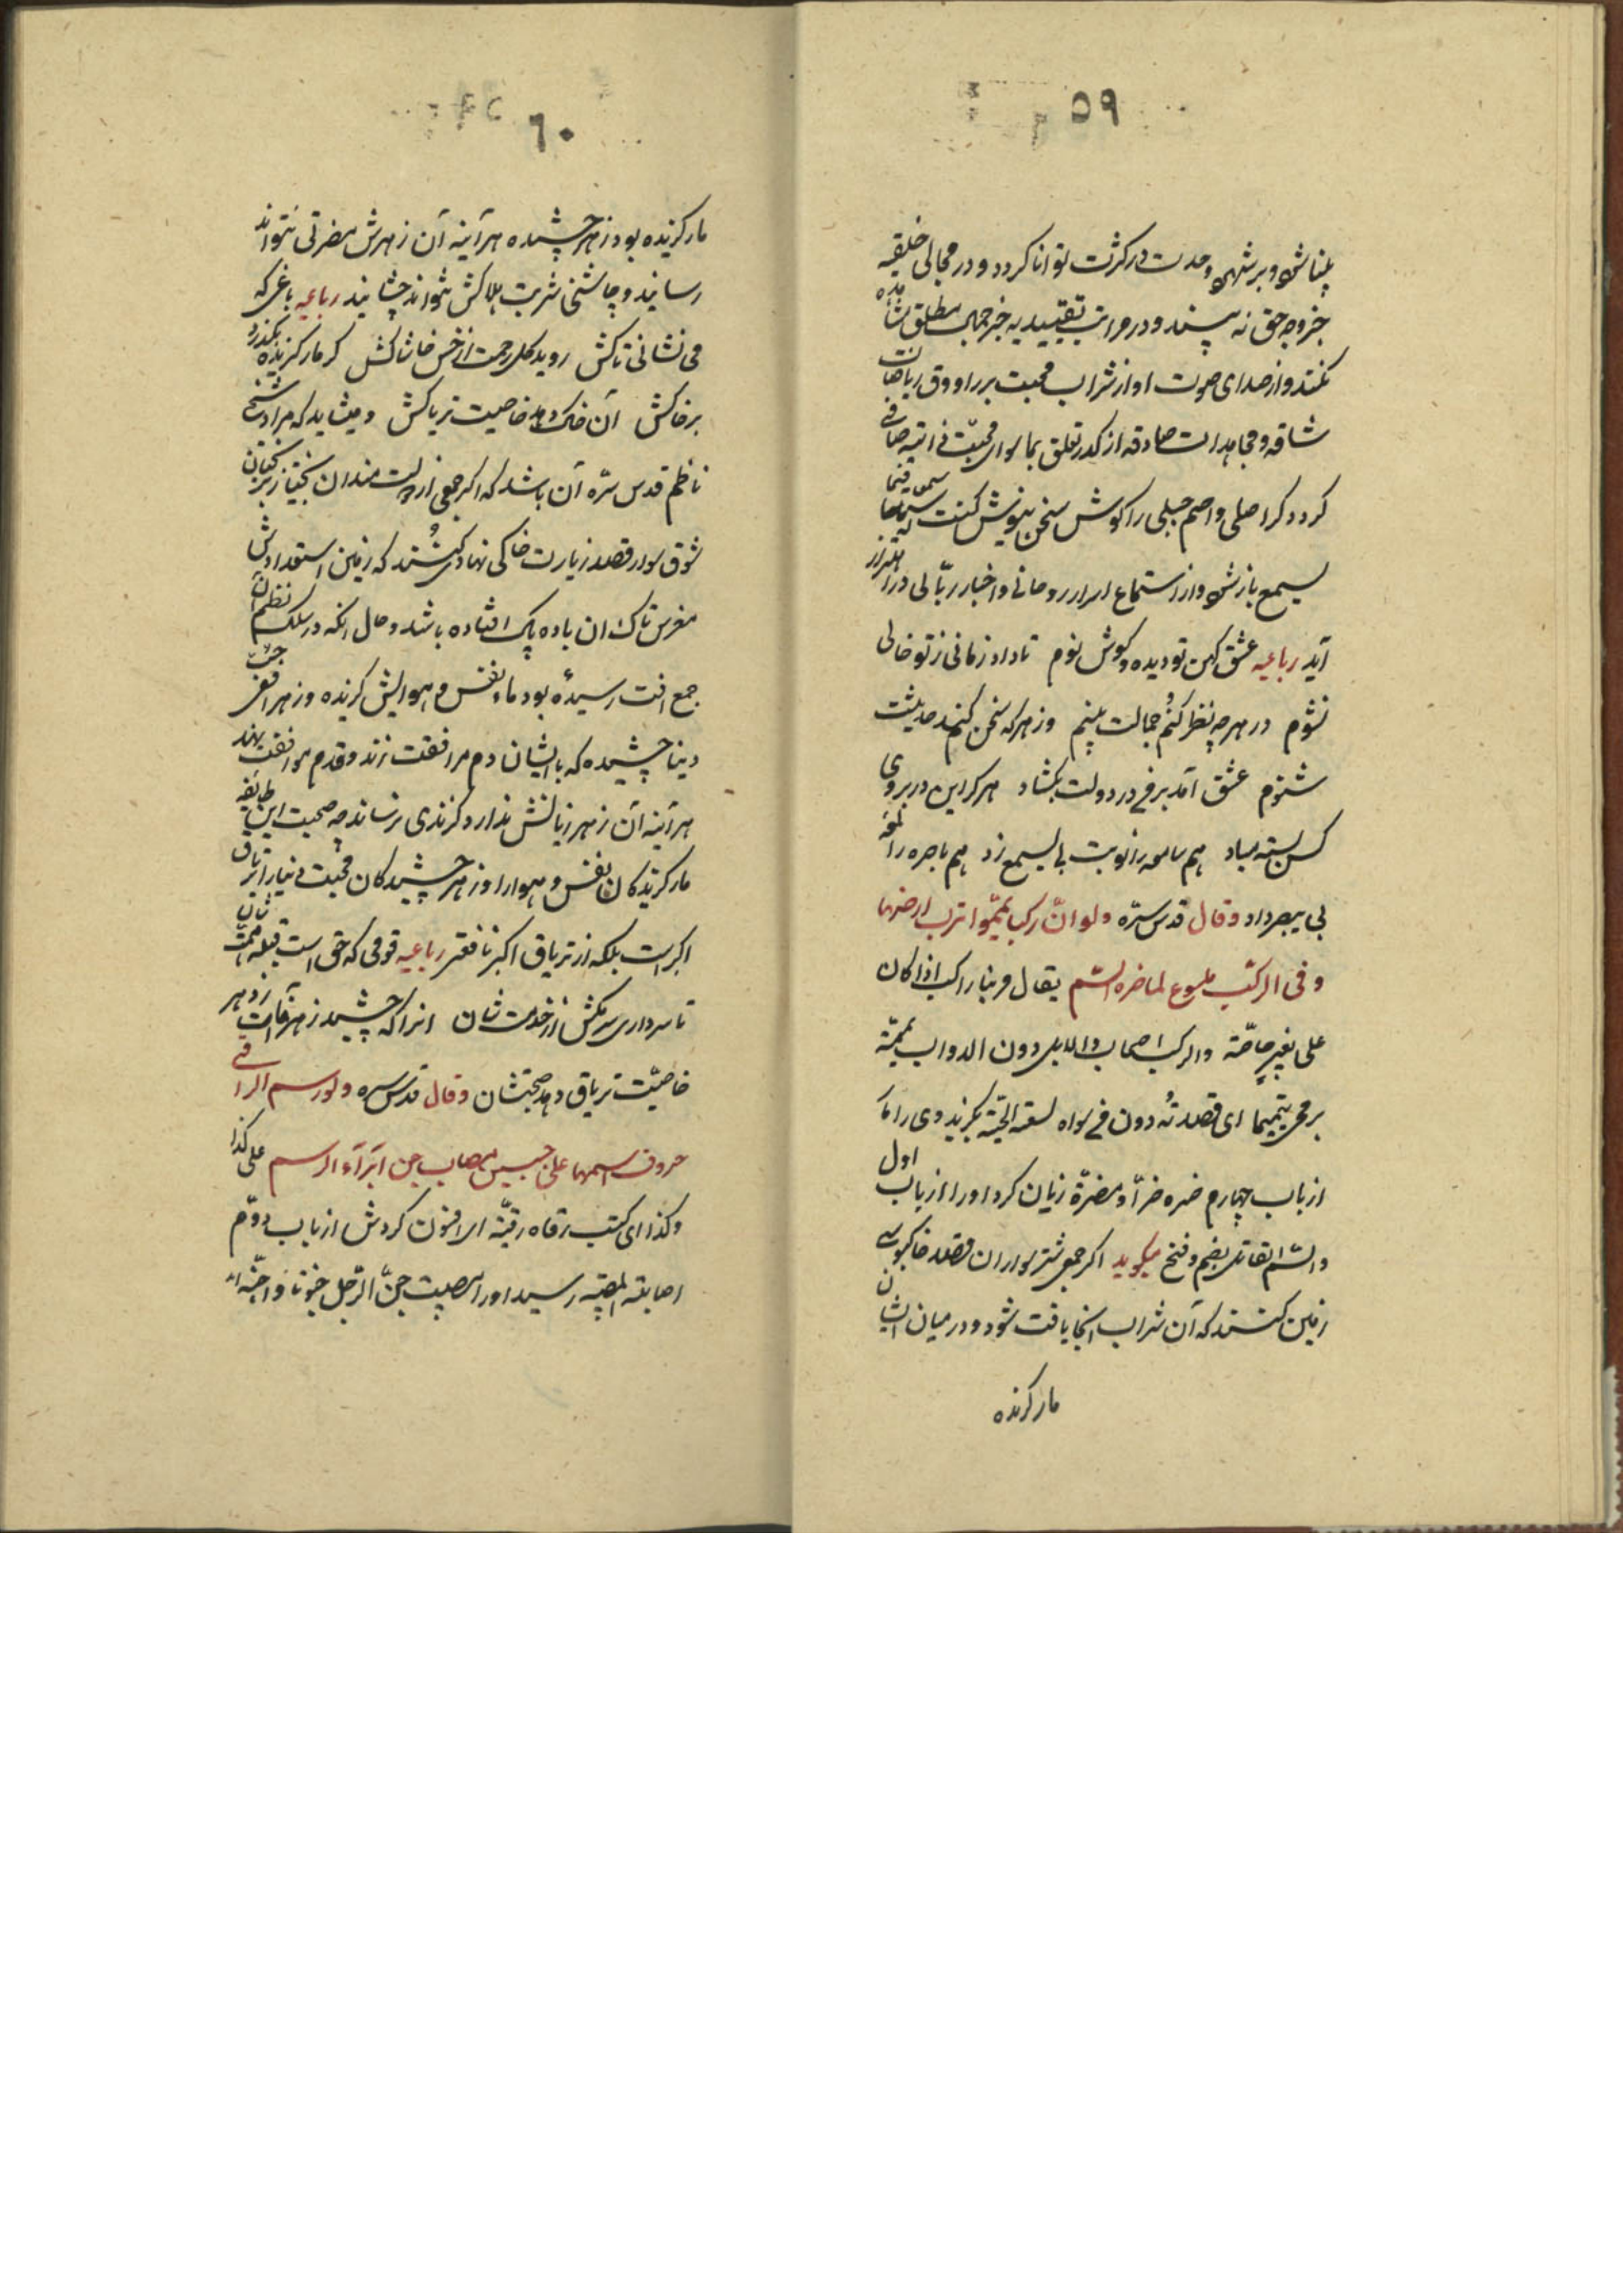 ۵۹
بینا شود و بر شهود وحدت در کثرت توانا کردد و در مجالی خلقیه
جز وجه حق نه بیند و در مراتب تقییدیه جز جمال مطلق مشاهده
نکند و از صدای صوت او از شراب محبت براووق ریاضات
شاقه و مجاهدات صادقه از کدر تعلق بماسوای محبت فی آنیه صافی
کردد کر اصلی و اصم جبلی را کوش سخن نیوش کنت له سمعا فبی
یسمع باز شود و از استماع اسرار روحانی و اخبار ربانی در اهتزاز
آید رباعیه عشق کهن تو دیده و کوش نوم تا داد زمانی ز تو خالی
نشوم در هرچه نظر کنم جمالت بینم وز هرکه سخن کند حدیثت
شنوم عشق آمد بر من در دولت بکشاد هرکز این در بروی
کس بسته مباد هم سامعه را نوبت بی یسمع زد هم باصره را
بی یبصر داد وقال قدس سرّه ولو انّ رکبا یمّموا ترب ارضها
وفی الرکب ملسوع لما ضره السّم یقال مر بنا راکب اذا کان
علی بعیر خاصّة والرکب اصحاب الابل دون الدواب یممتة
برمحی تیمیما ای قصدته دون من سواه لسعته الحیة بکزید وی را مار
از باب چهارم ضره ضرّا و مضرّة زیان کرد او را از باب اول
والسّم القاتل بضم و فتح میکوید اکر جمعی شتر سواران قصد خاکبوسی
زمین کنند که آن شراب آنجا یافت شود و در میان ایشان
مار کزنده
۶۰
مار کزیده بود زهر چشیده هر آینه آن زهرش مضرتی نتواند
رسانید و چاشنی شربت هلاکش نتواند چشانید رباعیه باغی که
می نشانی تاکش روید کل رحمت از خس و خاشاکش کر مار کزیده بکذرد
بر خاکش آن خاک دهد خاصیت تریاکش و میشاید که مراد شیخ
ناظم قدس سرّه آن باشد که اکر جمعی از نیازمندان بختیار بر بختیان
شوق سوار قصد زیارت خاکی نهاد کنند که زمین استعدادش
مغرس تاک ان باده پاک افتاده باشد و حال انکه در سلک نظم آن
جمع آفت رسیدهٔ بود مار نفس و هوایش کزیده و زهر افعی حب
دنیا چشیده که با ایشان دم مرافقت زند و قدم موافقت نهد
هر آینه آن زهر زیانش ندارد و کزندی نرساند چه صحبت این طایفه
مار کزیدکان نفس و هوا را و زهر چشیدکان محبت دنیا را تریاق
اکبر است بلکه از تریاق اکبر نافعتر رباعیه قومی که حق است قبله همت شان
تا سر داری سر مکش از خدمت شان انرا که چشید زهر آفات دهر
خاصیّت تریاق دهد صحبتشان وقال قدس سره ولو رسم الراقی
حروف اسمها علی جبین مصاب جن ابرأه الرسم علی کذا
وکذا ای کتب رقاه رقیّة ای افسون کردش از باب دوّم
اصابته المصیبة رسید او را مصیبت جنّ الرّجل جنونا و اجنّه الله